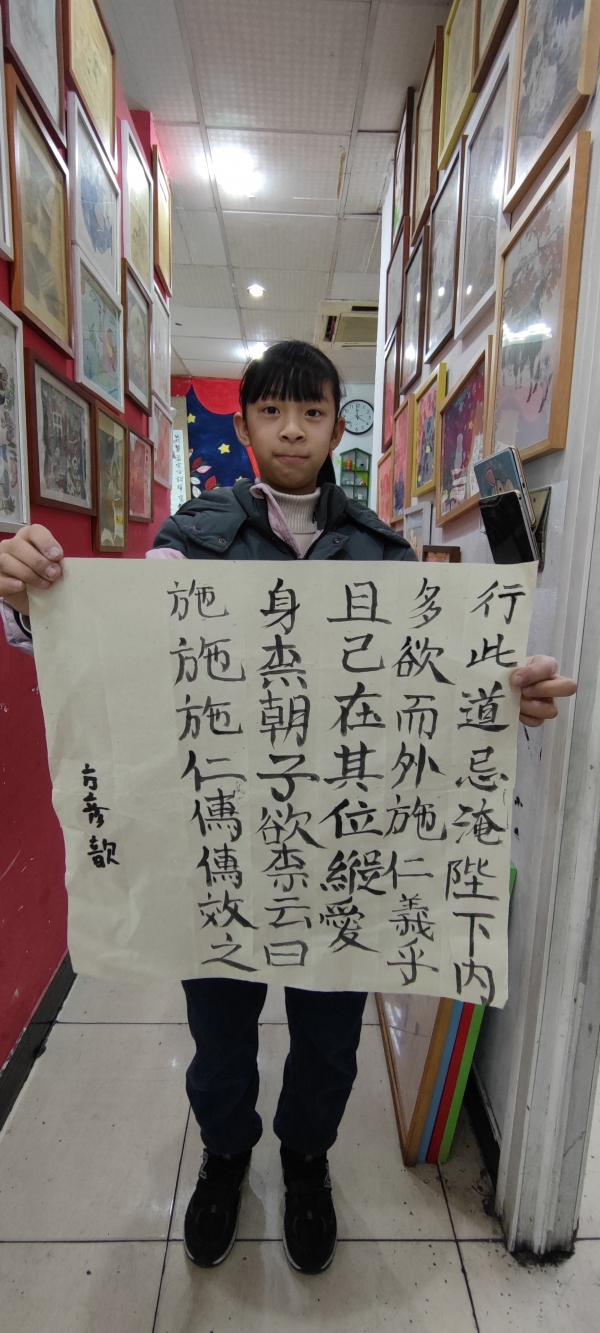 行此道忌淹陛下内
多欲而外施仁義乎
且己在其位縱愛
身柰朝子欲柰云曰
施施施仁傳傳效之
方彦歆